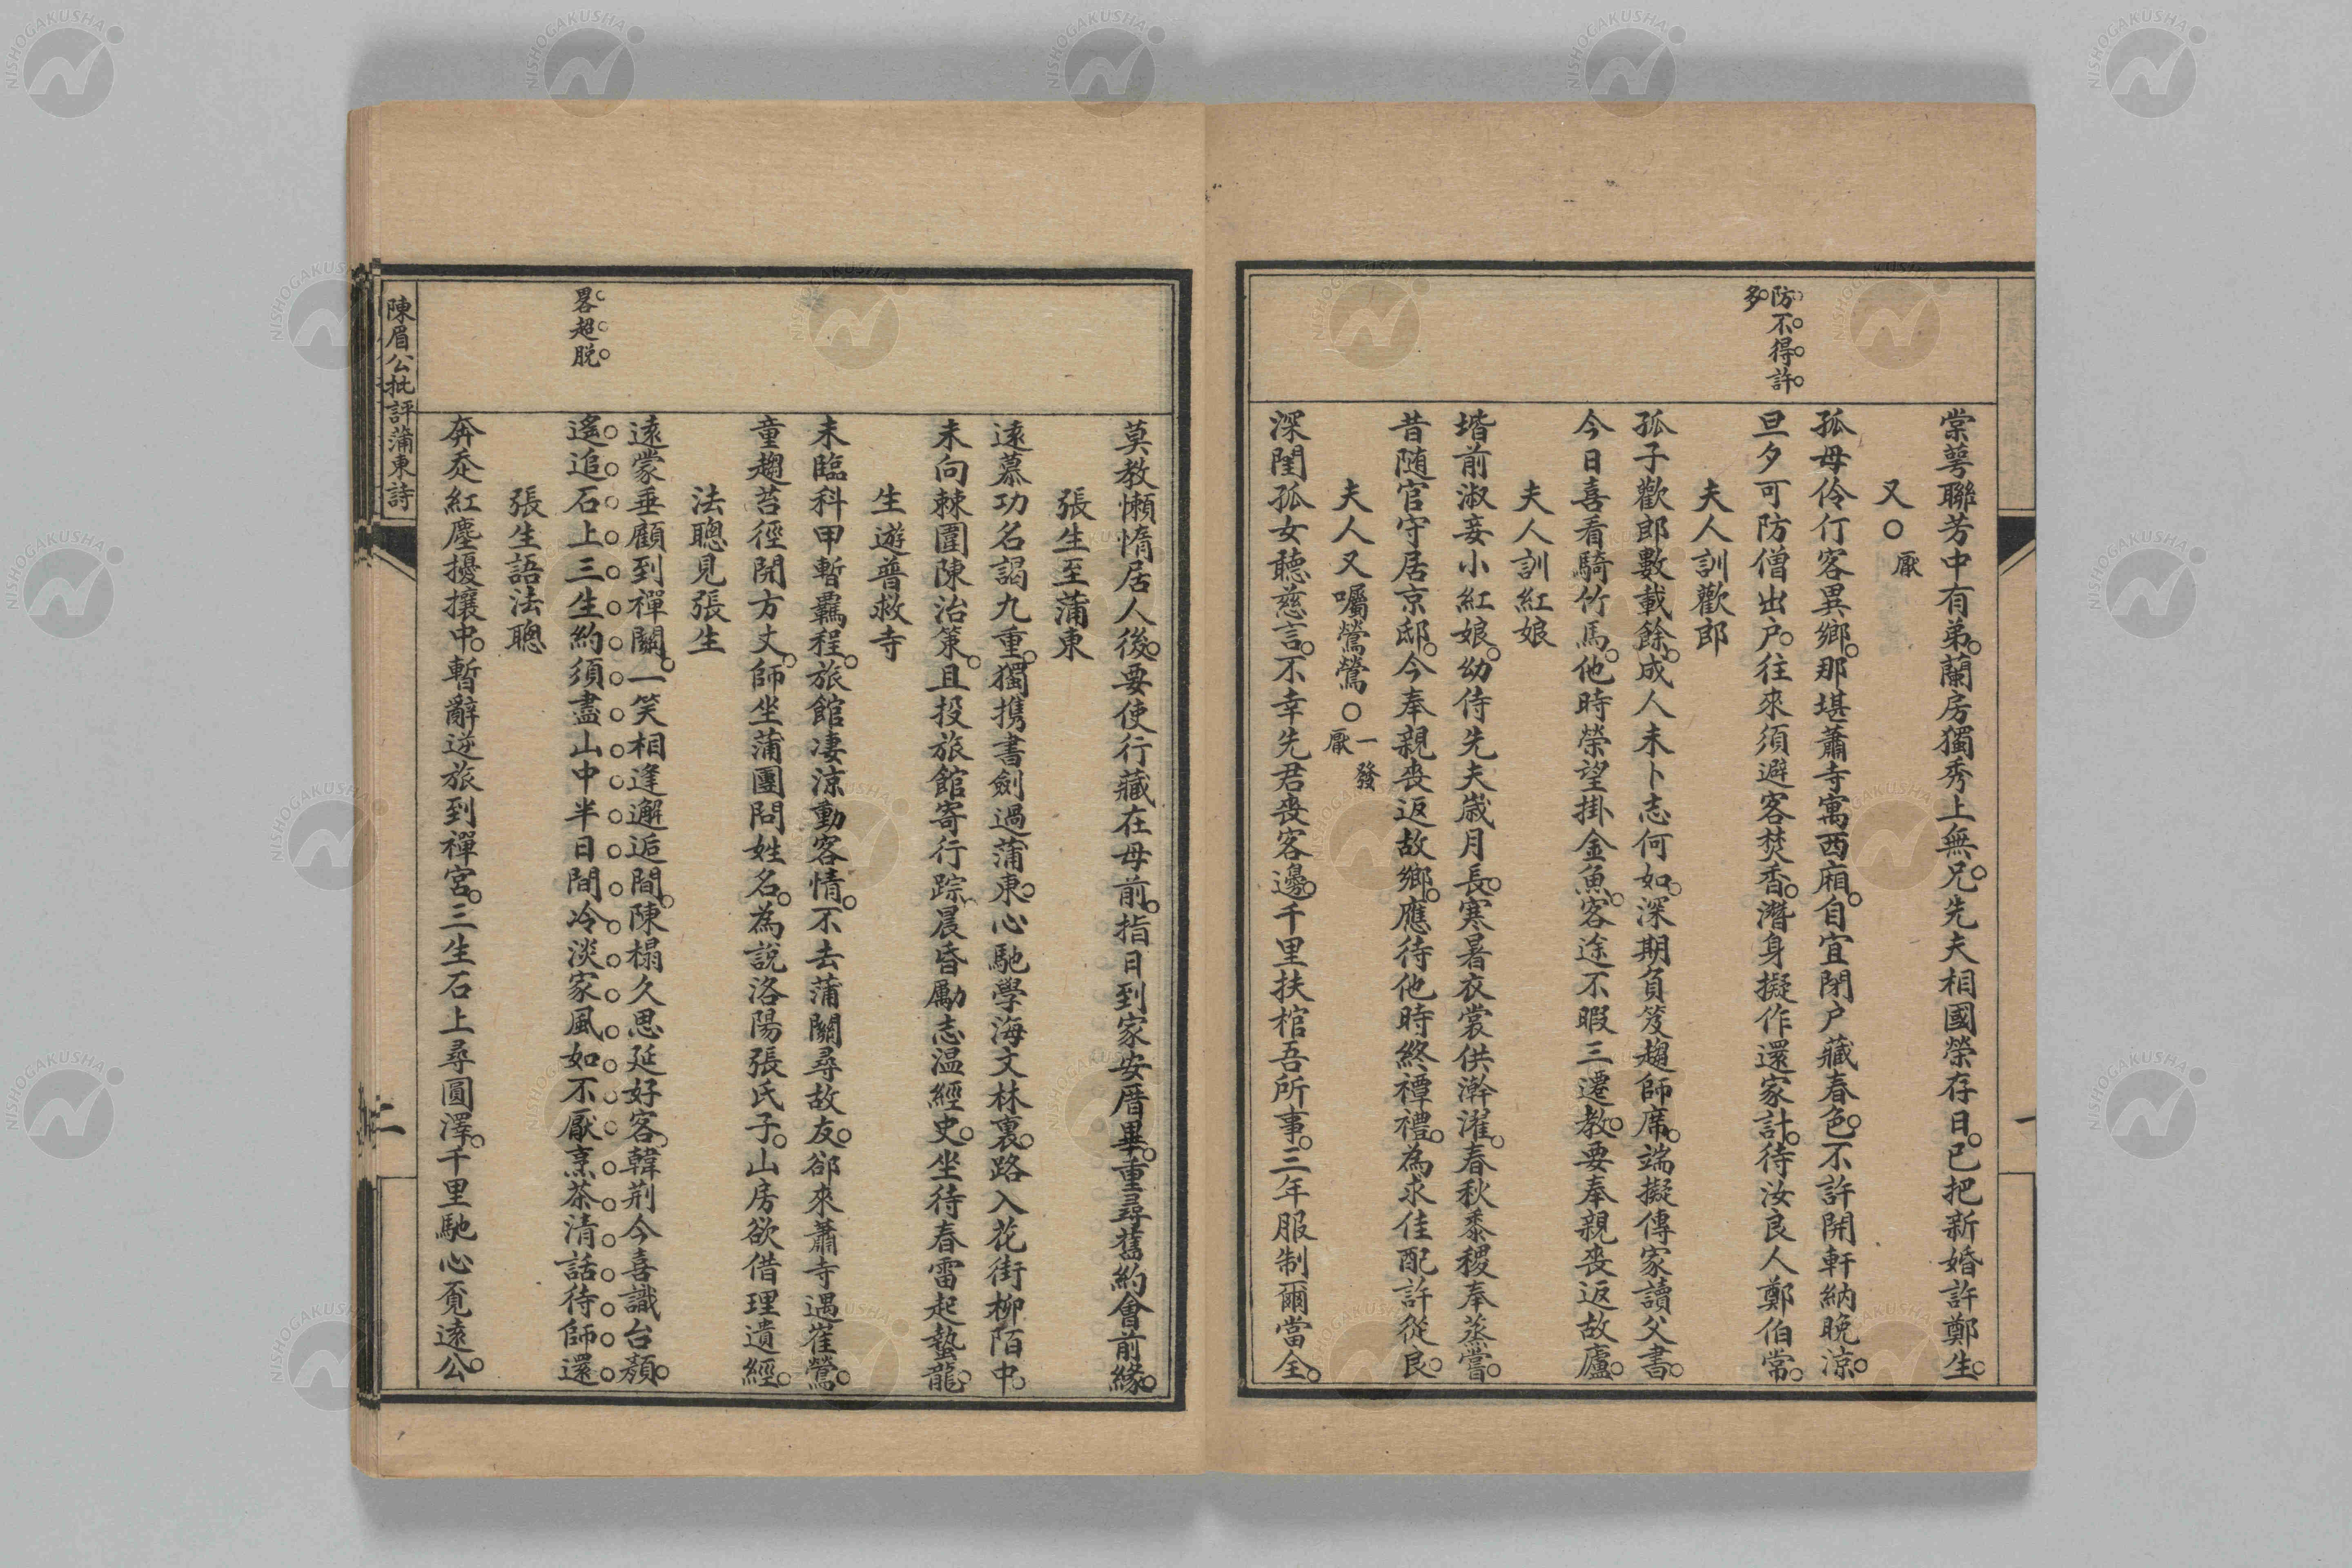 防不得許
多
棠萼聯芳中有弟。蘭房獨秀上無兄。先夫相國榮存日。已把新婚許鄭生。
又〇厭
孤母伶仃客異鄉。那堪蕭寺寓西廂。自宜閉户藏春色。不許開軒納晚涼。
旦夕可防僧出户。往來須避客焚香。潛身擬作還家計。待汝良人鄭伯常。
夫人訓歡郎
孤子歡郎數載餘。成人未卜志何如。深期負笈趨師席。端擬傳家讀父書。
今日喜看騎竹馬。他時榮望掛金魚。客途不暇三遷教。要奉親喪返故廬。
夫人訓紅娘
堦前淑妾小紅娘。幼侍先夫歲月長。寒暑衣裳供澣濯。春秋黍稷奉蒸嘗。
昔随官守居京邸。今奉親喪返故鄉。應待他時終禫禮。為求佳配許從良。
夫人又囑鶯鶯〇一發厭
深閨孤女聽慈言。不幸先君喪客邊。千里扶棺吾所事。三年服制爾當全。
莫教懶惰居人後。要使行藏在母前。指日到家安厝畢。重尋舊約會前緣。
張生至蒲東
遠慕功名謁九重。獨携書劍過蒲東。心馳學海文林裏。路入花街柳陌中。
未向棘圍陳治策。且投旅館寄行踪。晨昏勵志温經史。坐待春雷起蟄龍。
生遊普救寺
未臨科甲暫羈程。旅館凄涼動客情。不去蒲關尋故友。郤來蕭寺遇崔鶯。
童趨苔徑開方丈。師坐蒲團問姓名。為說洛陽張氏子。山房欲借理遺經。
法聰見張生
畧超脱
遠蒙垂顧到禪關。一笑相逢邂逅間。陳榻久思延好客。韓荆今喜識台顏。
遙追石上三生約。須盡山中半日間。冷淡家風如不厭。烹茶清話待師還。
張生語法聰
奔走紅塵擾攘中。暫辭逆旅到禪宮。三生石上尋圓澤。千里馳心覓遠公。
陳眉公批評蒲東詩
二
一
NISHOGAKUSHA